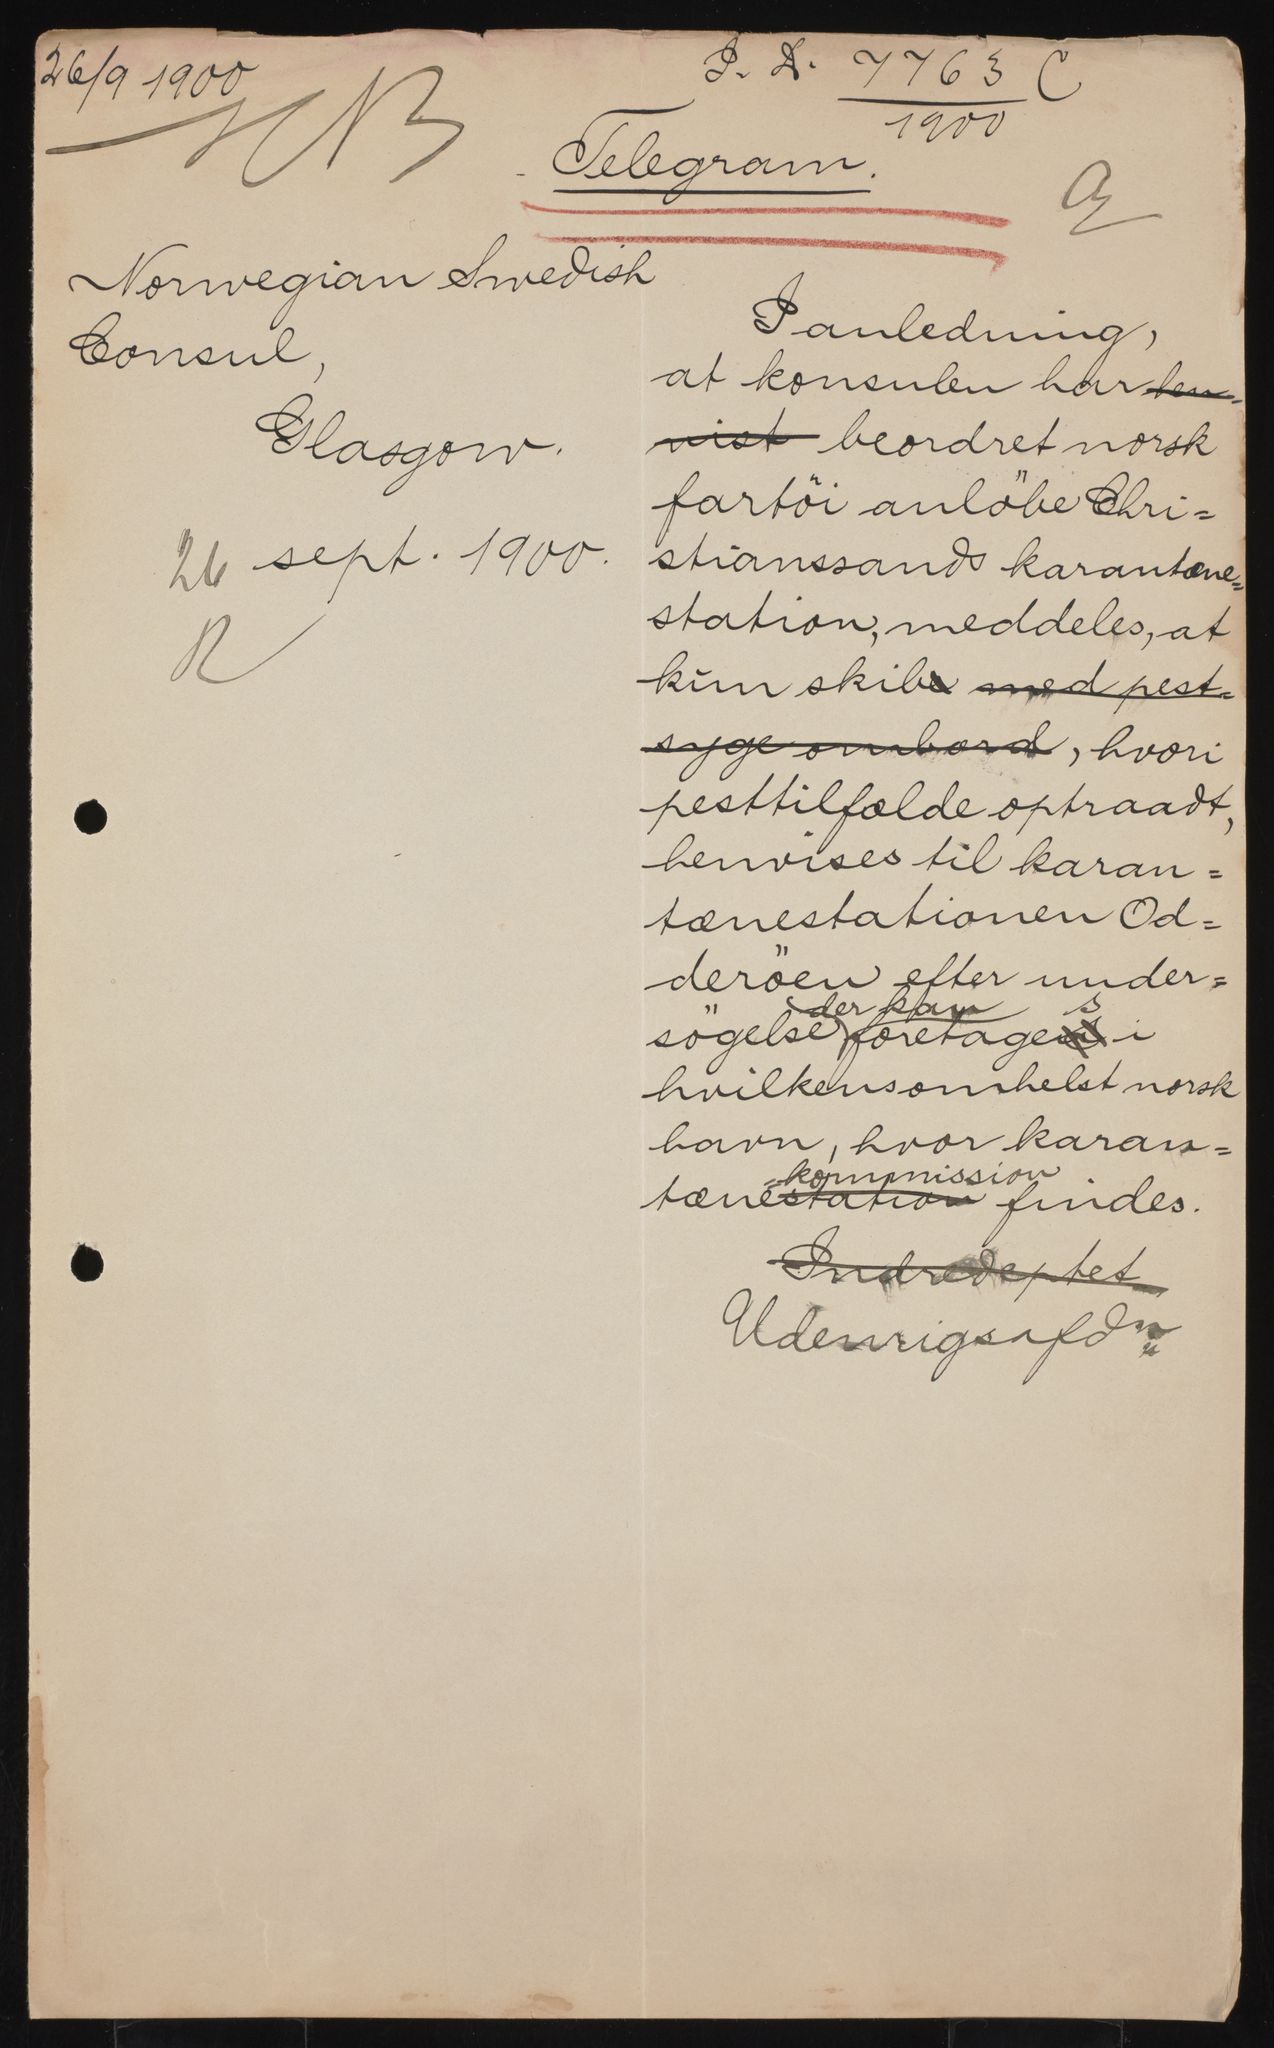 26/9 1900
NB
I. D. 7763 C
1900
Telegram.
Norwegian Swedish
Consul,
Glasgow.
26 sept. 1900.
I anledning,
at konsulen har hen=
vist beordret norsk
fartöi anlöbe Chri=
stianssands karantæne=
station, meddeles, at
kun skibe med pest=
syge ombord, hvori
pesttilfælde optraadt,
henvises til karan=
tænestationen Od=
deröen efter under=
der kan s
sögelse foretagen i
hvilkensomhelst norsk
havn, hvor karan=
=kommission
tænestation findes.
Indredeptet
Udenrigsafdn